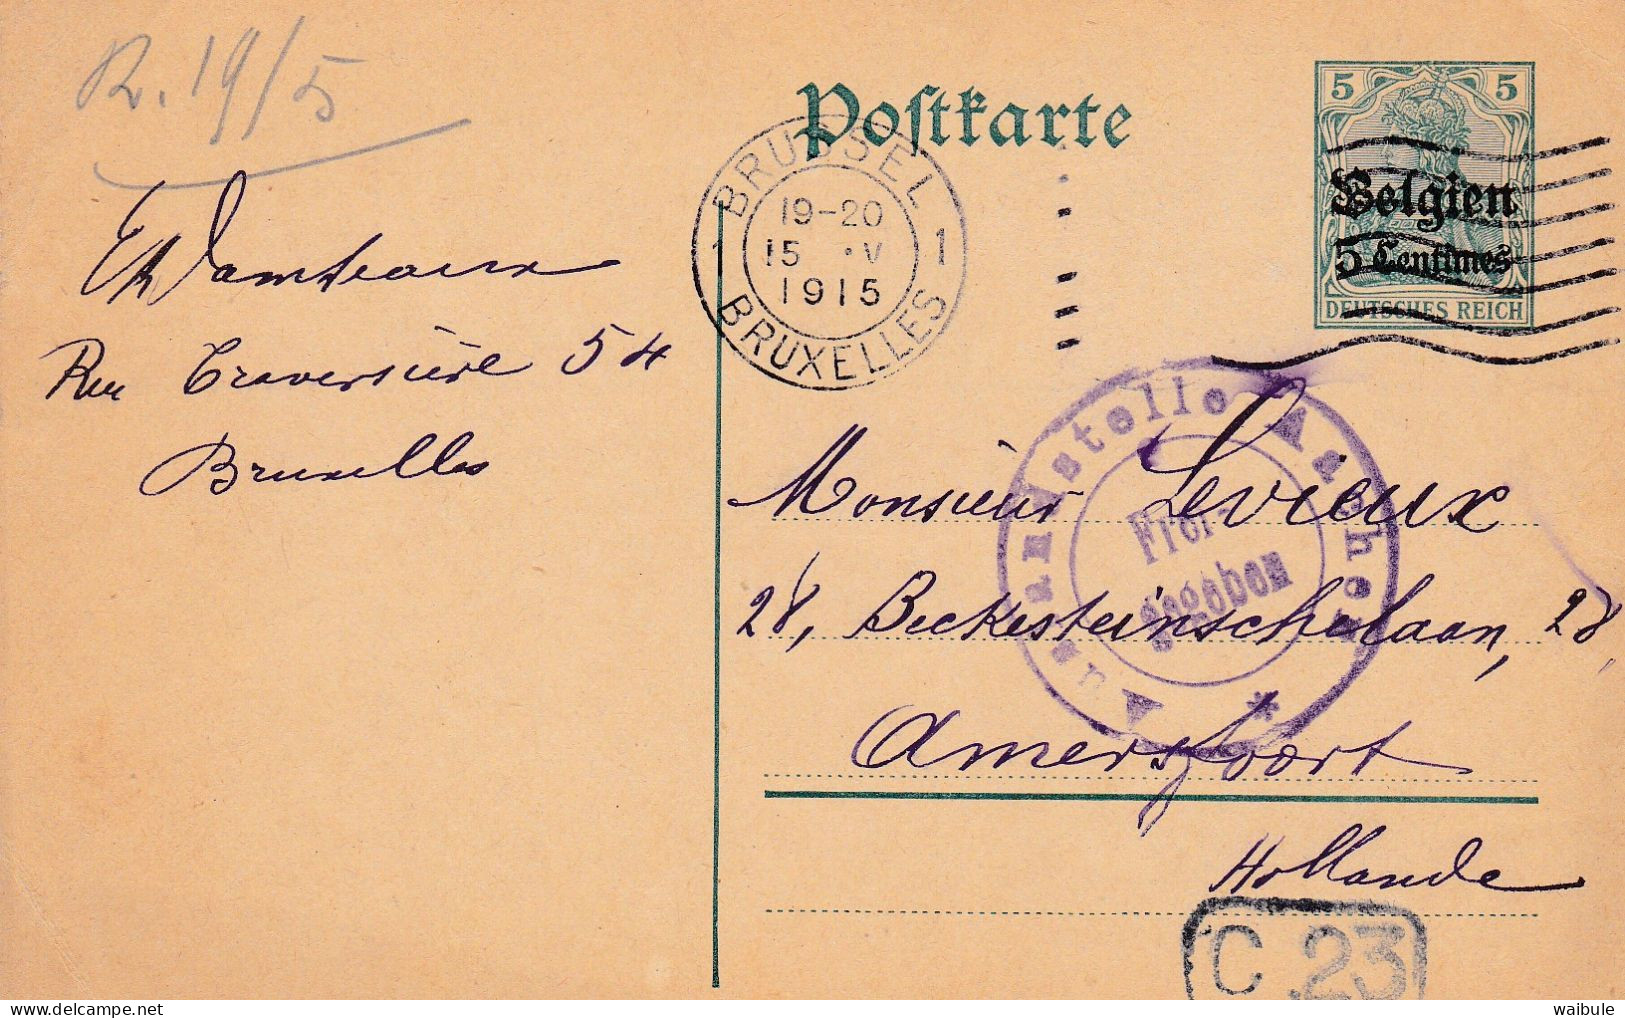 R. 19/5
Postkarte
5 5
Belgien
5 Centimes
DEUTSCHES REICH
BRUSSEL
19-20
15 · V
1915
1 1
BRUXELLES
Rue Traversière 54
Bruxelles
Auslandstelle Aachen
Frei-
gegeben
*
Monsieur Levieux
28, Beckesteinschelaan, 28,
Amersfoort
Hollande
C 23
waibule